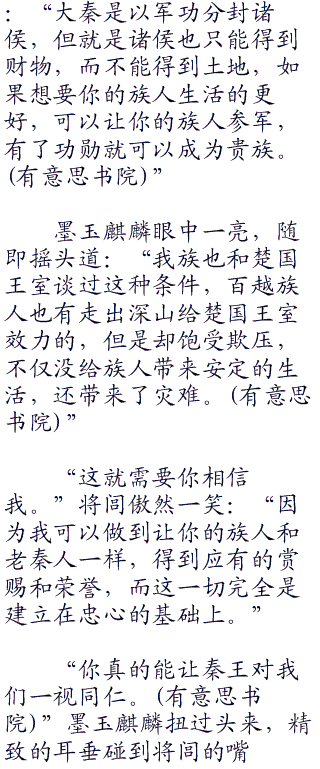 ：“大秦是以军功分封诸
侯，但就是诸侯也只能得到
财物，而不能得到土地，如
果想要你的族人生活的更
好，可以让你的族人参军，
有了功勋就可以成为贵族。
(有意思书院)”
墨玉麒麟眼中一亮，随
即摇头道：“我族也和楚国
王室谈过这种条件，百越族
人也有走出深山给楚国王室
效力的，但是却饱受欺压，
不仅没给族人带来安定的生
活，还带来了灾难。(有意思
书院)”
“这就需要你相信
我。”将闾傲然一笑：“因
为我可以做到让你的族人和
老秦人一样，得到应有的赏
赐和荣誉，而这一切完全是
建立在忠心的基础上。”
“你真的能让秦王对我
们一视同仁。(有意思书
院)”墨玉麒麟扭过头来，精
致的耳垂碰到将闾的嘴